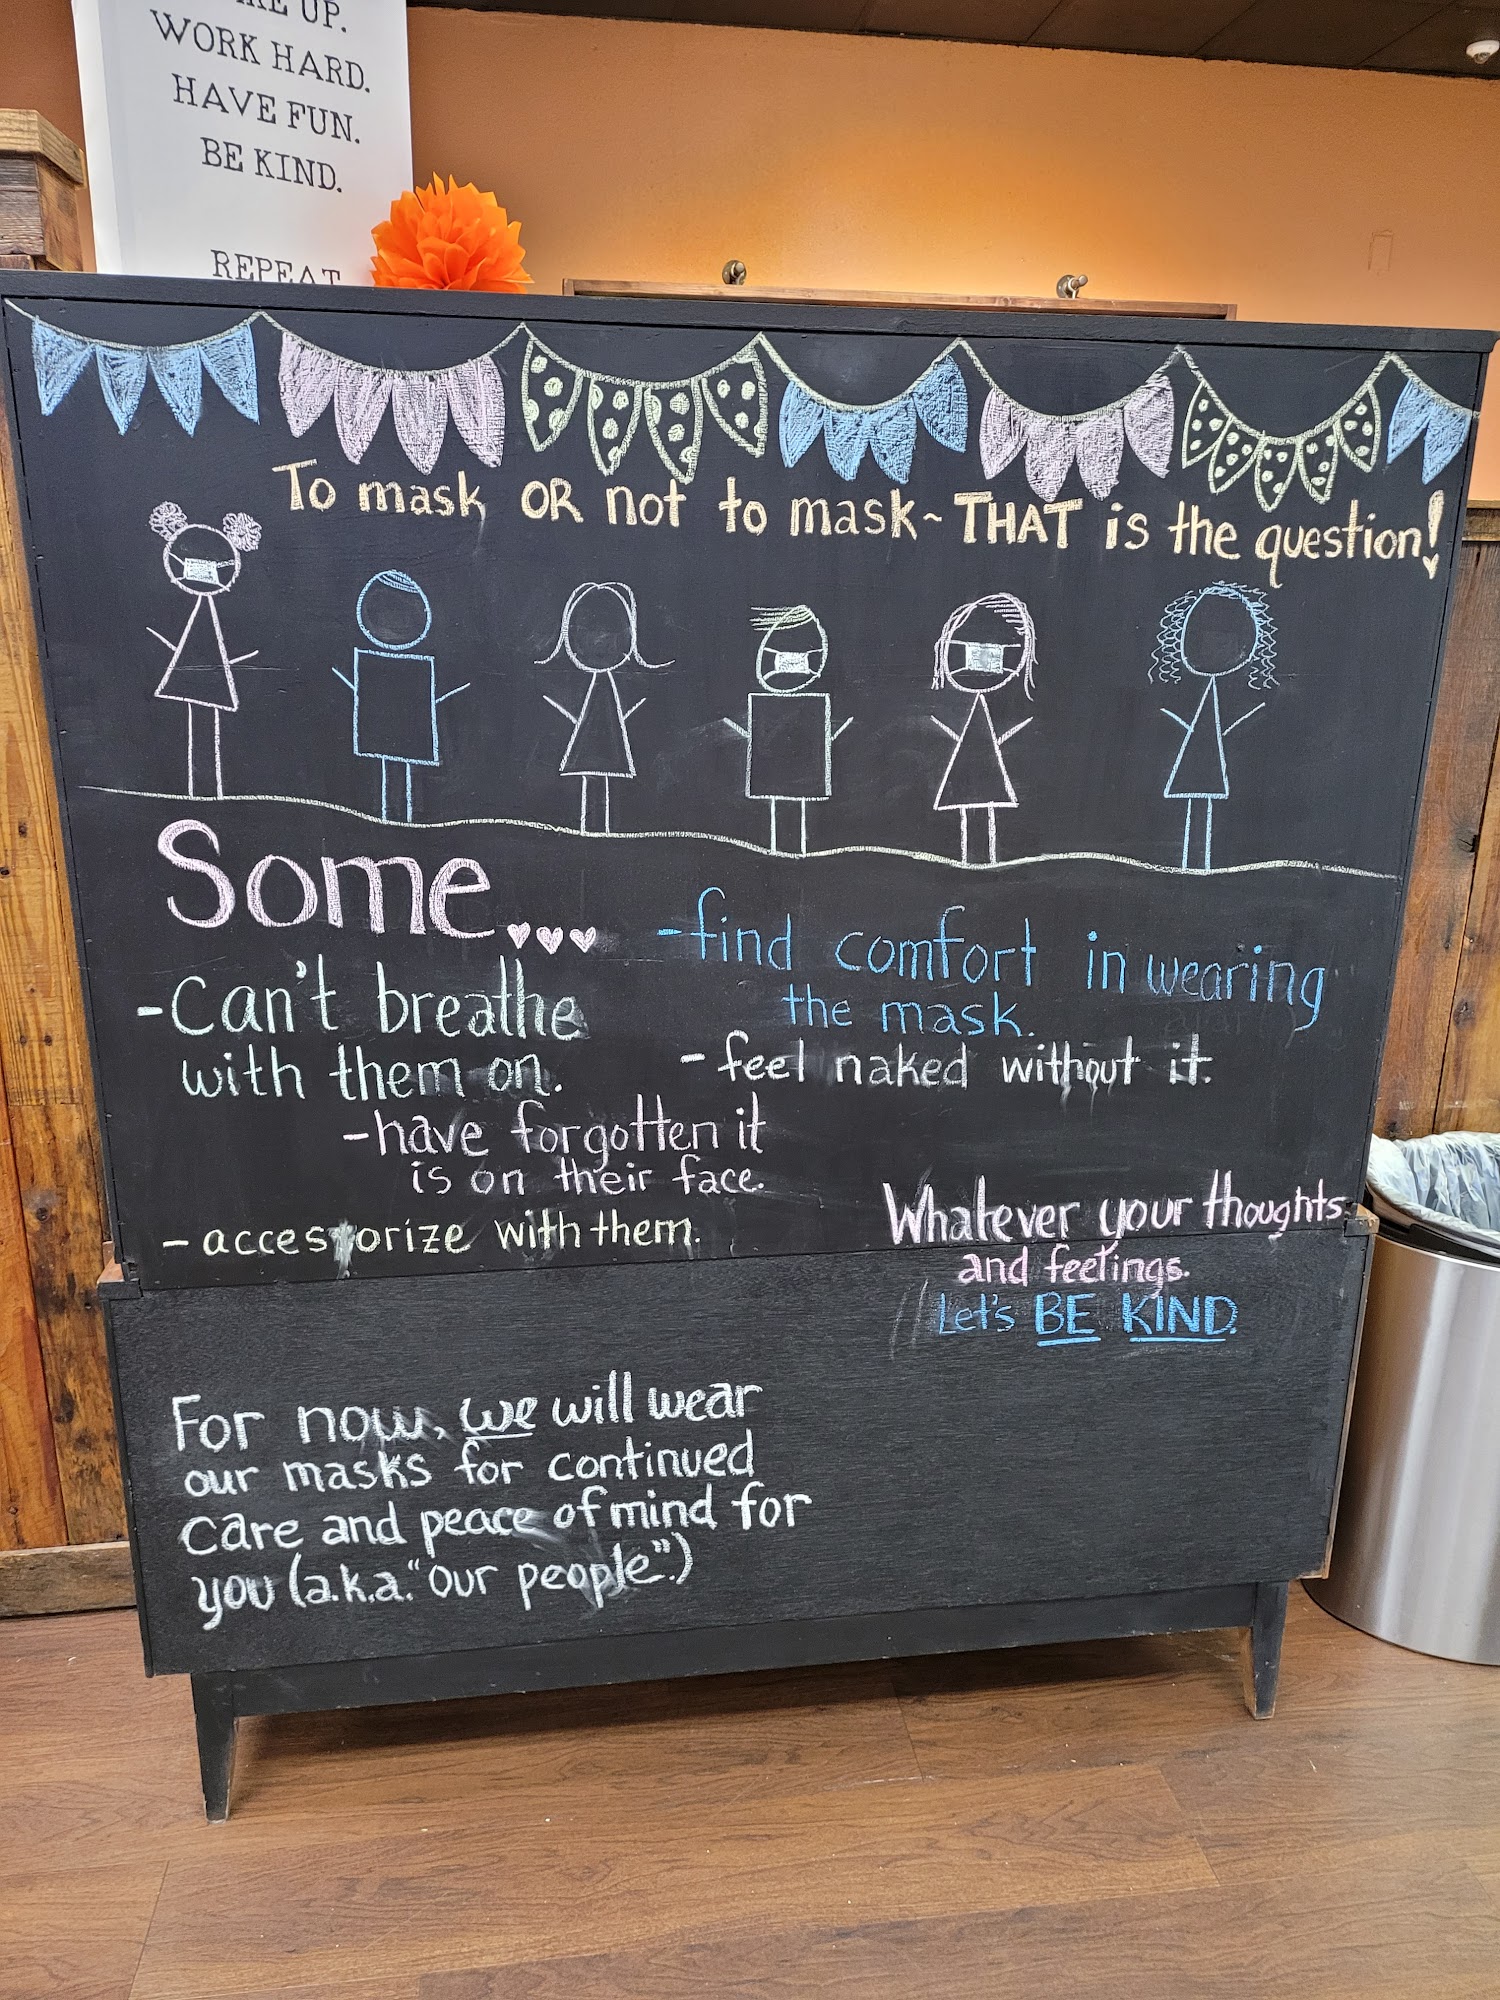 UP.
WORK HARD.
HAVE FUN.
BE KIND.
REPEAT
To mask OR not to mask~THAT is the question!
Some...
-Can't breathe
with them on.
-have forgotten it
is on their face.
-accessorize with them.
-find comfort in wearing
the mask.
-feel naked without it.
Whatever your thoughts
and feelings.
Let's BE KIND.
For now, we will wear
our masks for continued
care and peace of mind for
you (a.k.a. "our people".)